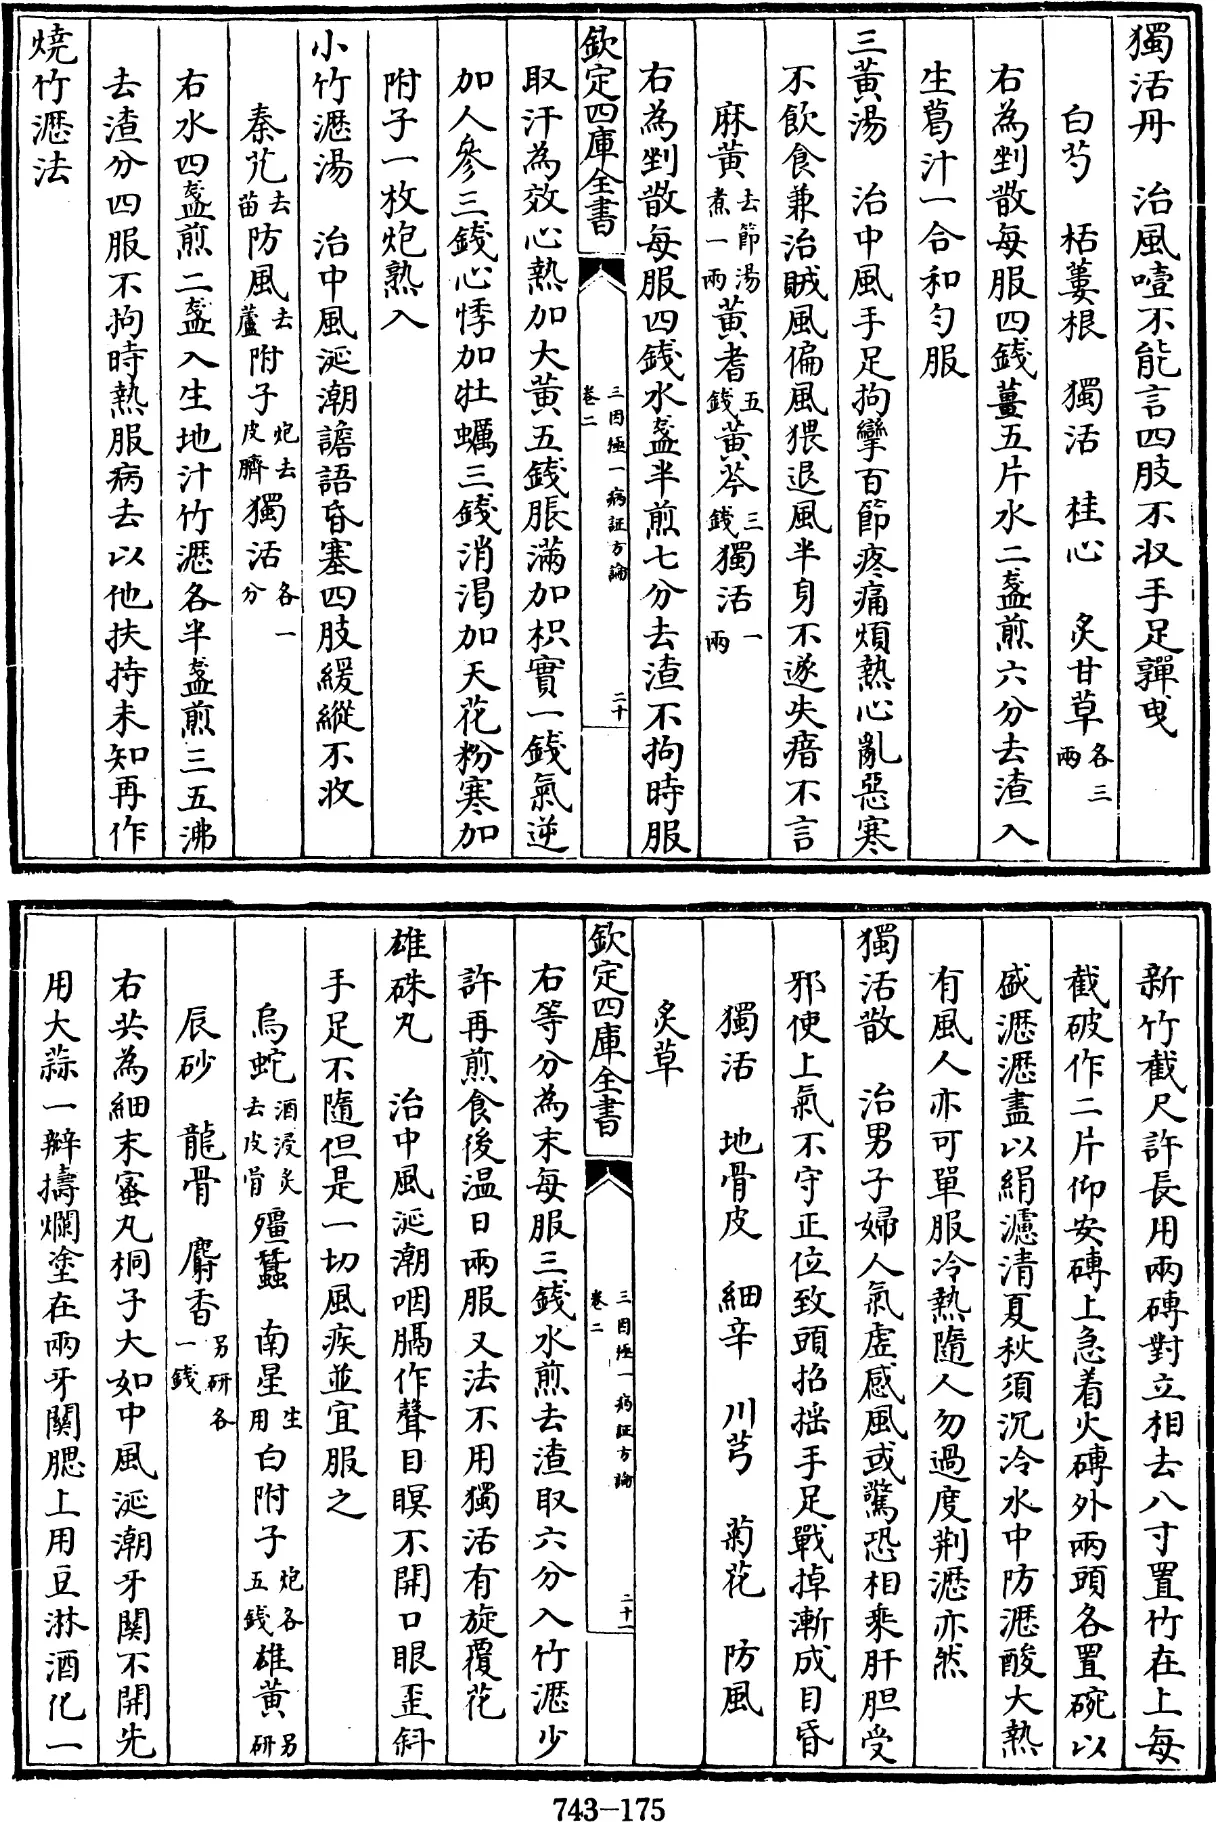 獨活丹　治風噎不能言四肢不收手足嚲曳
白芍　栝蔞根　獨活　桂心　炙甘草各三兩
右為剉散每服四錢薑五片水二盞煎六分去渣入
生葛汁一合和勻服
三黃湯　治中風手足拘攣百節疼痛煩熱心亂惡寒
不飲食兼治賊風偏風猥退風半身不遂失瘖不言
麻黃去節湯煮一兩黃耆五錢黃芩三錢獨活一兩
右為剉散每服四錢水盞半煎七分去渣不拘時服
欽定四庫全書　三因極一病証方論卷二　二十
取汗為效心熱加大黃五錢脹滿加枳實一錢氣逆
加人參三錢心悸加牡蠣三錢消渴加天花粉寒加
附子一枚炮熟入
小竹瀝湯　治中風涎潮譫語昏塞四肢緩縱不收
秦艽去苗防風去蘆附子炮去皮臍獨活各一分
右水四盞煎二盞入生地汁竹瀝各半盞煎三五沸
去渣分四服不拘時熱服病去以他扶持未知再作
燒竹瀝法
新竹截尺許長用兩磚對立相去八寸置竹在上每
截破作二片仰安磚上急着火磚外兩頭各置碗以
盛瀝瀝盡以絹濾清夏秋須沉冷水中防瀝酸大熱
有風人亦可單服冷熱隨人勿過度荆瀝亦然
獨活散　治男子婦人氣虛感風或驚恐相乘肝胆受
邪使上氣不守正位致頭招摇手足戰掉漸成目昏
獨活　地骨皮　細辛　川芎　菊花　防風
炙草
欽定四庫全書　三因極一病証方論卷二　二十一
右等分為末每服三錢水煎去渣取六分入竹瀝少
許再煎食後温日兩服又法不用獨活有旋覆花
雄硃丸　治中風涎潮咽膈作聲目瞑不開口眼歪斜
手足不隨但是一切風疾並宜服之
烏蛇酒浸炙去皮骨殭蠶　南星生用白附子炮各五錢雄黃另研
辰砂　龍骨　麝香另研各一錢
右共為細末蜜丸桐子大如中風涎潮牙關不開先
用大蒜一瓣擣爛塗在兩牙關腮上用豆淋酒化一
743-175